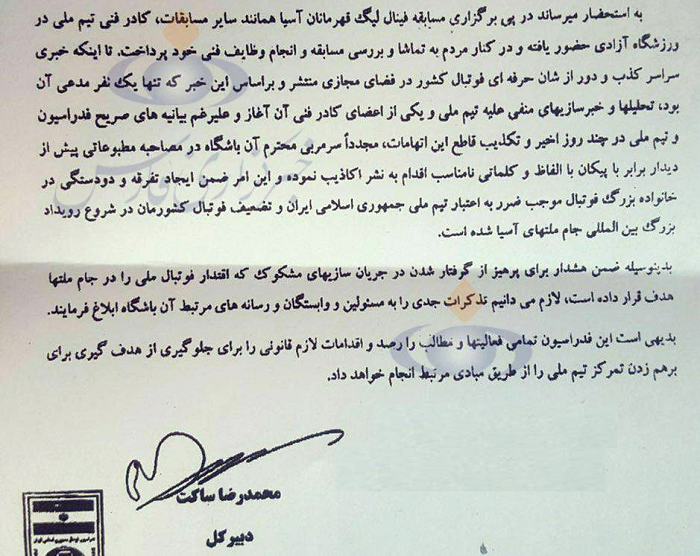 به استحضار میرساند در پی برگزاری مسابقه فینال لیگ قهرمانان آسیا همانند سایر مسابقات، کادر فنی تیم ملی در
ورزشگاه آزادی حضور یافته و در کنار مردم به تماشا و بررسی مسابقه و انجام وظایف فنی خود پرداخت. تا اینکه خبری
سراسر کذب و دور از شان حرفه ای فوتبال کشور در فضای مجازی منتشر و براساس این خبر که تنها یک نفر مدعی آن
بود، تحلیلها و خبرسازیهای منفی علیه تیم ملی و یکی از اعضای کادر فنی آن آغاز و علیرغم بیانیه های صریح فدراسیون
و تیم ملی در چند روز اخیر و تکذیب قاطع این اتهامات، مجدداً سرمربی محترم آن باشگاه در مصاحبه مطبوعاتی پیش از
دیدار برابر با پیکان با الفاظ و کلماتی نامناسب اقدام به نشر اکاذیب نموده و این امر ضمن ایجاد تفرقه و دودستگی در
خانواده بزرگ فوتبال موجب ضرر به اعتبار تیم ملی جمهوری اسلامی ایران و تضعیف فوتبال کشورمان در شروع رویداد
بزرگ بین المللی جام ملتهای آسیا شده است.
بدینوسیله ضمن هشدار برای پرهیز از گرفتار شدن در جریان سازیهای مشکوک که اقتدار فوتبال ملی را در جام ملتها
هدف قرار داده است، لازم می دانیم تذکرات جدی را به مسئولین و وابستگان و رسانه های مرتبط آن باشگاه ابلاغ فرمایند.
بدیهی است این فدراسیون تمامی فعالیتها و مطالب را رصد و اقدامات لازم قانونی را برای جلوگیری از هدف گیری برای
برهم زدن تمرکز تیم ملی را از طریق مبادی مرتبط انجام خواهد داد.
محمدرضا ساکت
دبیر کل